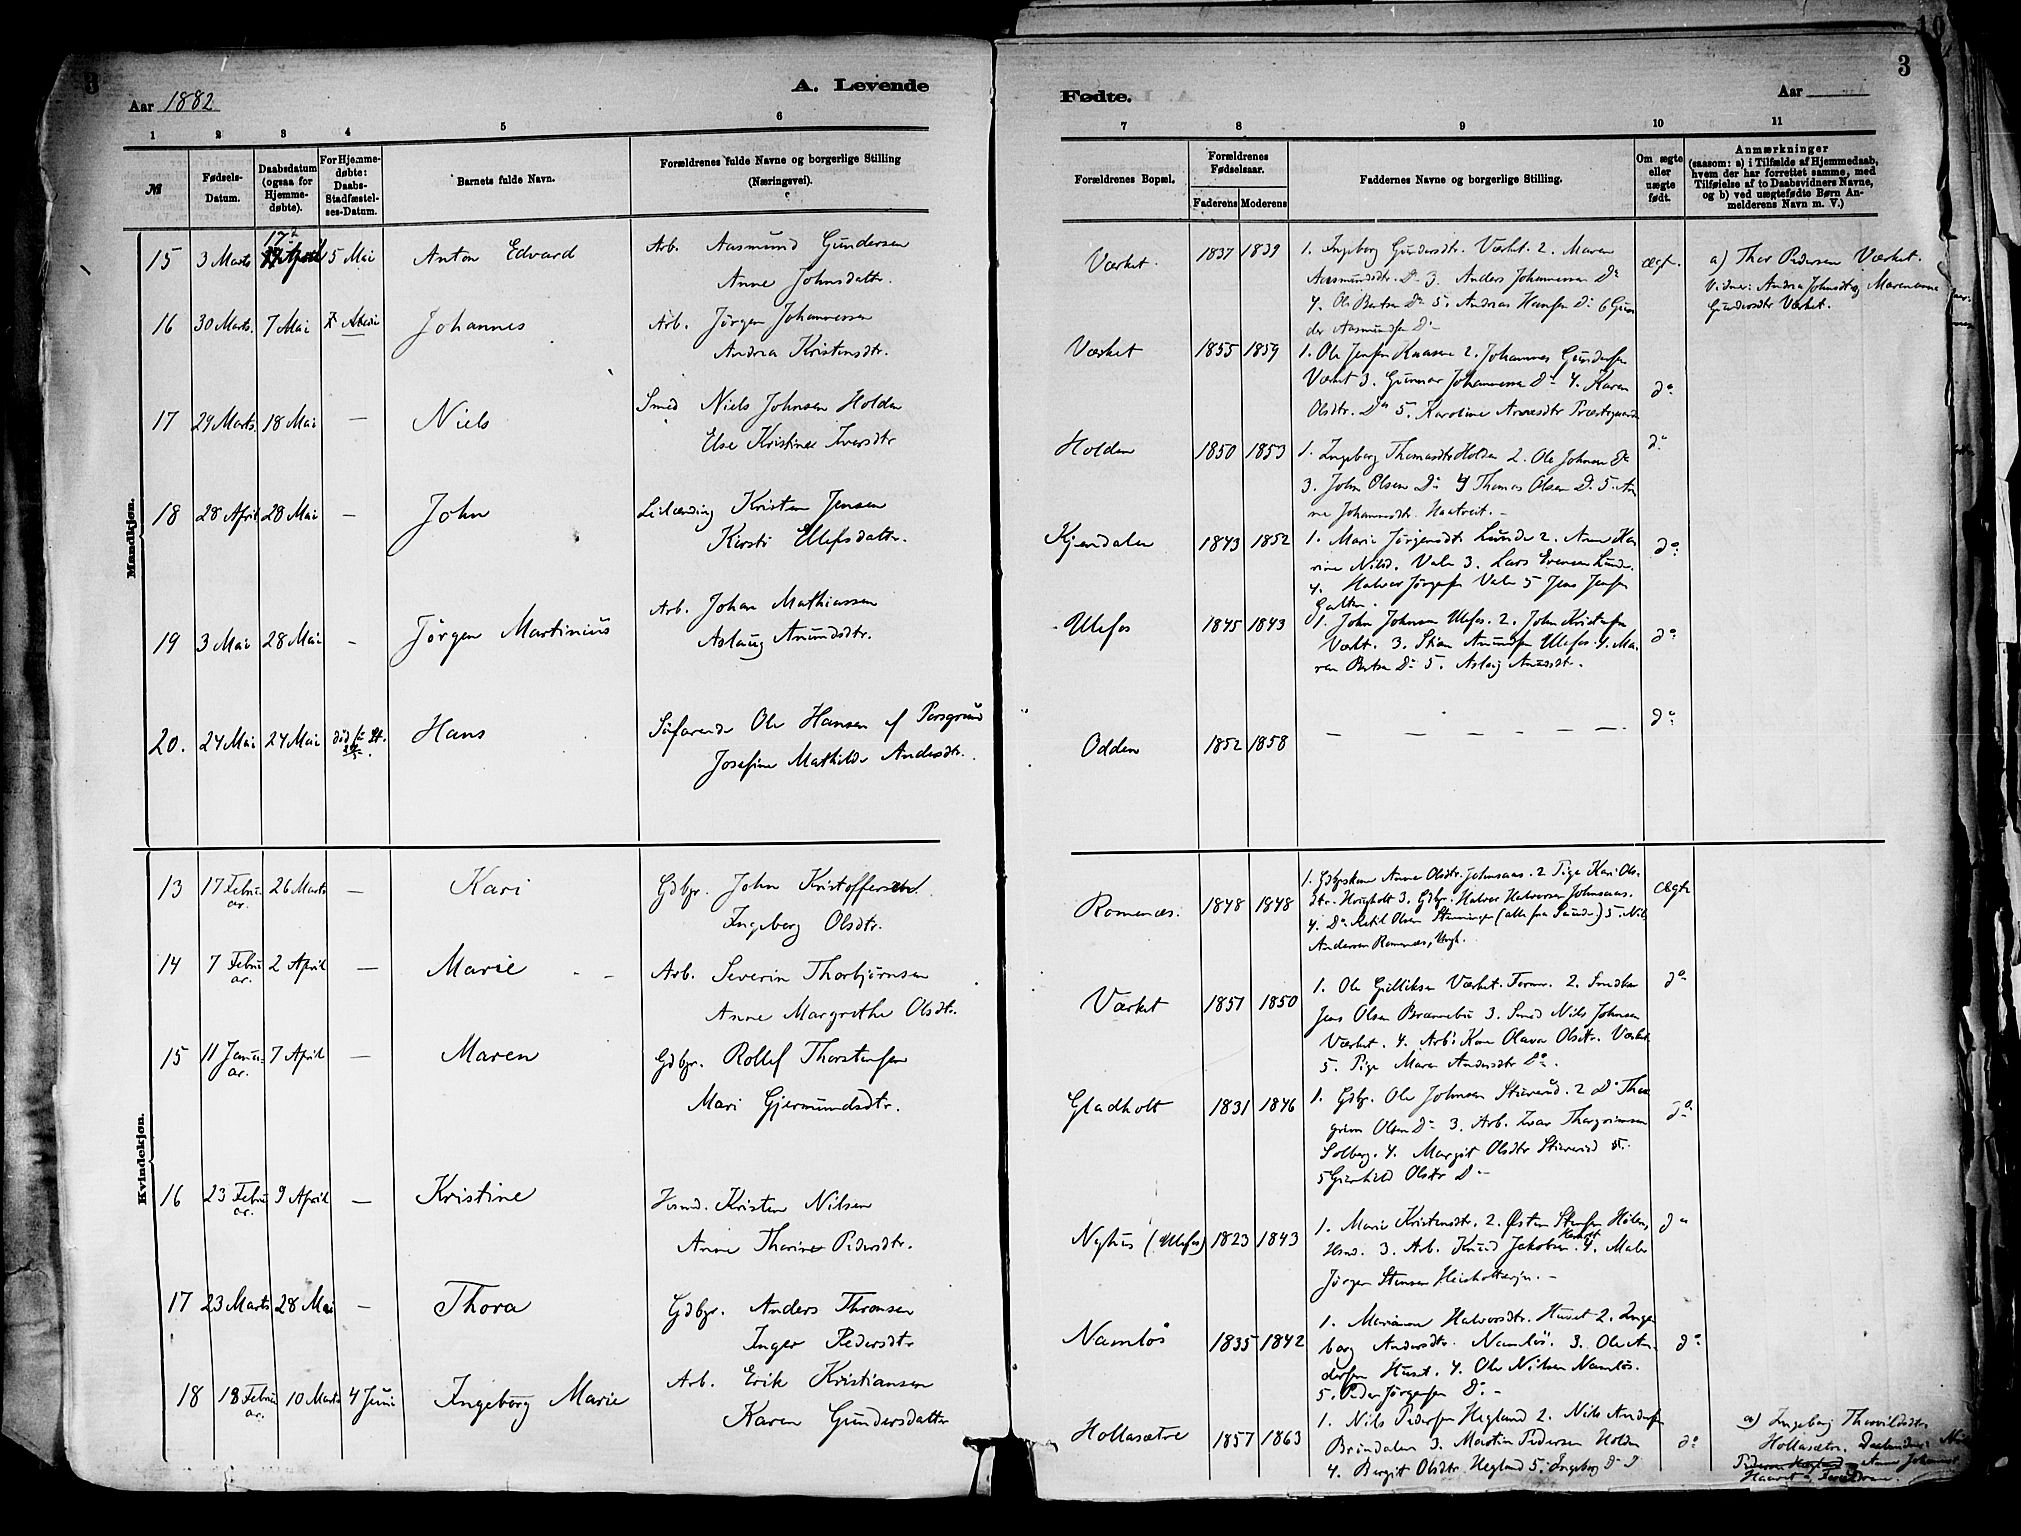 3
Aar 1882
A. Levende
1 2 3 4 5 6
№
Fødsels-Datum.
Daabsdatum (ogsaa for Hjemmedøbte).
For Hjemmedøbte: Daabs-Stadfæstelses-Datum.
Barnets fulde Navn.
Forældrenes fulde Navne og borgerlige Stilling (Næringsvei).
Mandkjøn.
15 3 Marts 17de 5 Mai Anton Edvard Arb. Aasmund Gundersen
Anne Johnsdatter
16 30 Marts. 7 Mai Johannes Arb. Jørgen Johannessen
Andrea Kristensdtr.
17 29 Marts. 18 Mai — Niels Smed Niels Johnsen Holden
Else Kristine Iversdtr
18 28 April 28 Mai — John Leilænding Kristen Jensen
Kirsti Ellefsdatter.
19 3 Mai 28 Mai — Jørgen Martinius Arb. Johan Mathiassen
Aslaug Amundsdtr.
20. 24 Mai 24 Mai død Hans Søfarende Ole Hansen af Porsgrund
Josefine Mathilde Andersdtr.
Kvindekjøn.
13 17 Februar. 26 Marts — Kari Gdbgr. John Kristoffersen
Ingeborg Olsdtr.
14 7 Februar. 2 April — Marie Arb. Severin Thorbjørnsen
Anne Margrethe Olsdtr.
15 11 Januar. 7 April — Maren Gdbgr. Rollef Thorstensen
Mari Gjermundsdtr.
16 23 Februar. 9 April — Kristine Hsmd. Kristen Nilsen
Anne Thorine Pedersdtr.
17 23 Marts 28 Mai — Thora Gdbgr. Anders Thronsen
Inger Pedersdtr
18 18 Februar. 10 Marts 4 Juni Ingeborg Marie Arb. Erik Kristiansen
Karen Gundersdatter
Fødte.
Aar
3
7 8 9 10 11
Forældrenes Bopæl.
Forældrenes Fødselsaar.
Faderens Moderens
Faddernes Navne og borgerlige Stilling.
Om ægte eller uægte født.
Anmærkninger
(saasom: a) i Tilfælde af Hjemmedaab,
hvem der har forrettet samme, med
Tilføielse af to Daabsvidners Navne,
og b) ved uægtefødte Børn Anmelderens Navn m. V.)
Værket. 1837 1839 1. Ingeborg Gundersdtr. Værket. 2. Maren
Aasmundsdtr. Do 3. Anders Johannessen Do
4. Ole Bertsen Do 5. Andreas Hansen Do 6 Gunder Aasmundsen Do
ægt.
a) Thor Pedersen Værket.
Vidner: Andrea Johnsdtr og Maren
Gundersdtr Værket.
Værket 1855 1859 1. Ole Jensen Kaasene 2. Johannes Gundersen
Værket 3. Gunnar Johannessen Do 4. Karen
Olsdtr. Do 5. Karoline Arnesdtr Præstegaarden
do
Holden 1850 1853 1. Ingeborg Thomasdtr Holden 2. Ole Johnsen do
3. John Olsen Do 4 Thomas Olsen Do 5. Anne Johannesdtr.
do
Kjendalen 1843 1852 1. Marie Jørgensdtr Lunde 2. Anne Karine Nilsd. Vala 3. Lars Evensen Lunde.
4. Halvor Jørgensen Vala 5 Jens Jensen
do
Ulefos 1845 1843 1. John Johnsen Ulefos. 2. John Kristensen
Værket. 3. Stian Amundsen Ulefos. 4. Maren Bertsen Do 5. Aslaug Amundsdtr.
do
Odden 1852 1858 — — — — — —
do
Romenæs. 1848 1848 1. Gdbrskone Anne Olsdtr. Johnsaas. 2 Pige Kari Olsdtr. 3. Gdbr. Halvor Halvorsen Johnsaas.
4. Do Ketil Olsen (alle fra Saude) 5. Nils
Andersen Romenæs, Ungk.
Ægte
Værket 1851 1850 1. Ole Gulliksen Værket. Former. 2. Smed
Jens Olsen Brænnebu 3. Smed Nils Johnsen
Værket. 4. Arb: Kone Olava Olsdtr. Værket
5. Pige Maren Andersdtr Do
do
Gladholt 1831 1846 1. Gdbr. Ole Johnsen Stuverud. 2 Do Thorgrim Olsen Do 3. Arb. Ivar Thorgrimsen
Solberg. 4. Margit Olsdtr Stuverud
5 Gunhild Olsdtr Do
do
Nyhus (Ulefos) 1823 1843 1. Marie Kristensdtr. 2. Østen Stensen Holen,
Hsmd. 3. Arb. Knud Jakobsen 4. Maler
Jørgen Stensen
do
Namløs 1835 1842 1. Mariane Halvorsdtr. Huset 2. Ingeborg Andersdtr. Namløs. 3. Ole Andersen Huset. 4. Ole Nilsen Namløs.
5. Peder Jørgensen Do
do
Hollasætre 1857 1863 1. Nils Pedersen Hegland 2. Nils Andersen
Brindalen 3. Martin Pedersen Holden
4. Bergit Olsdtr. Hegland 5. Ingeborg
do
a) Ingeborg Thovildsdtr.
Hollasætre.